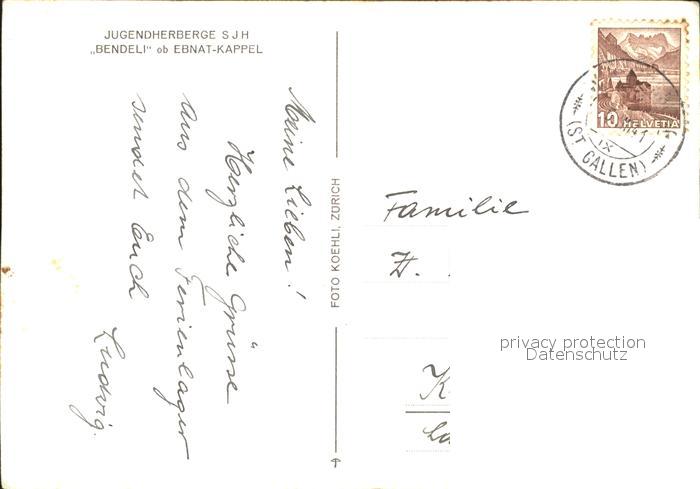 JUGENDHERBERGE SJH
„BENDELI" ob EBNAT-KAPPEL
Meine Lieben!
Herzliche Grüsse
aus dem Ferienlager
sendet Euch
Ludwig.
FOTO KOEHLI, ZÜRICH
10 HELVETIA
IX
(ST GALLEN)
Familie
privacy protection
Datenschutz